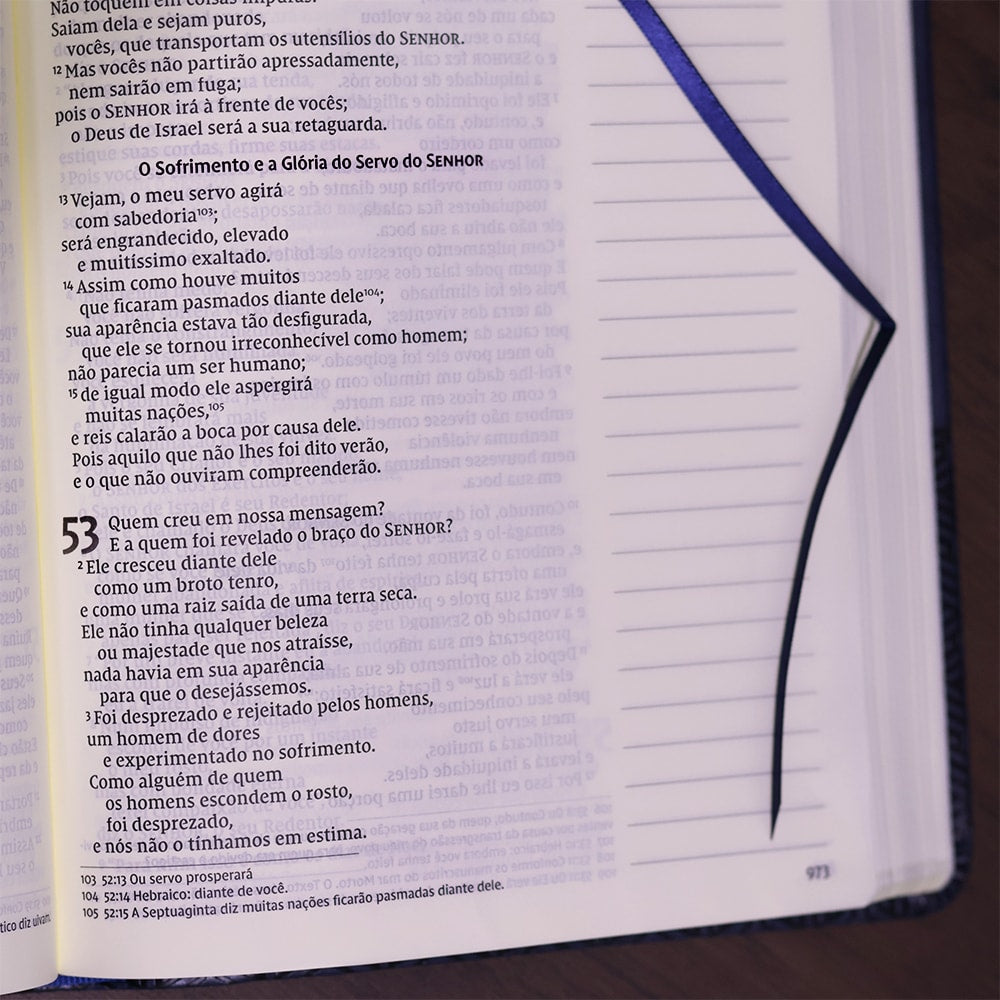 Não toquem em coisas impuras.
Saiam dela e sejam puros,
vocês, que transportam os utensílios do SENHOR.
12 Mas vocês não partirão apressadamente,
nem sairão em fuga;
pois o SENHOR irá à frente de vocês;
o Deus de Israel será a sua retaguarda.
O Sofrimento e a Glória do Servo do SENHOR
13 Vejam, o meu servo agirá
com sabedoria103;
será engrandecido, elevado
e muitíssimo exaltado.
14 Assim como houve muitos
que ficaram pasmados diante dele104;
sua aparência estava tão desfigurada,
que ele se tornou irreconhecível como homem;
não parecia um ser humano;
15 de igual modo ele aspergirá
muitas nações,105
e reis calarão a boca por causa dele.
Pois aquilo que não lhes foi dito verão,
e o que não ouviram compreenderão.
53 Quem creu em nossa mensagem?
E a quem foi revelado o braço do SENHOR?
2 Ele cresceu diante dele
como um broto tenro,
e como uma raiz saída de uma terra seca.
Ele não tinha qualquer beleza
ou majestade que nos atraísse,
nada havia em sua aparência
para que o desejássemos.
3 Foi desprezado e rejeitado pelos homens,
um homem de dores
e experimentado no sofrimento.
Como alguém de quem
os homens escondem o rosto,
foi desprezado,
e nós não o tínhamos em estima.
103 52:13 Ou servo prosperará
104 52:14 Hebraico: diante de você.
105 52:15 A Septuaginta diz muitas nações ficarão pasmadas diante dele.
973
tico diz uivam